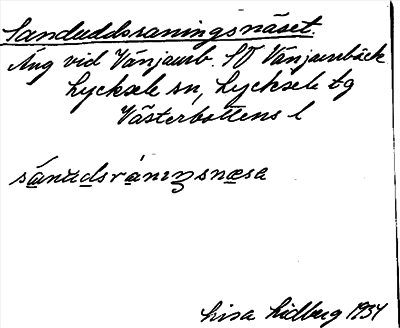 Sanduddsraningsnäset.
Äng vid Vänjaurb. SO Vänjaurbäck
Lycksele sn, Lycksele tg
Västerbottens l
sánudsrániŋsnæsa
Lisa Lidberg 1934